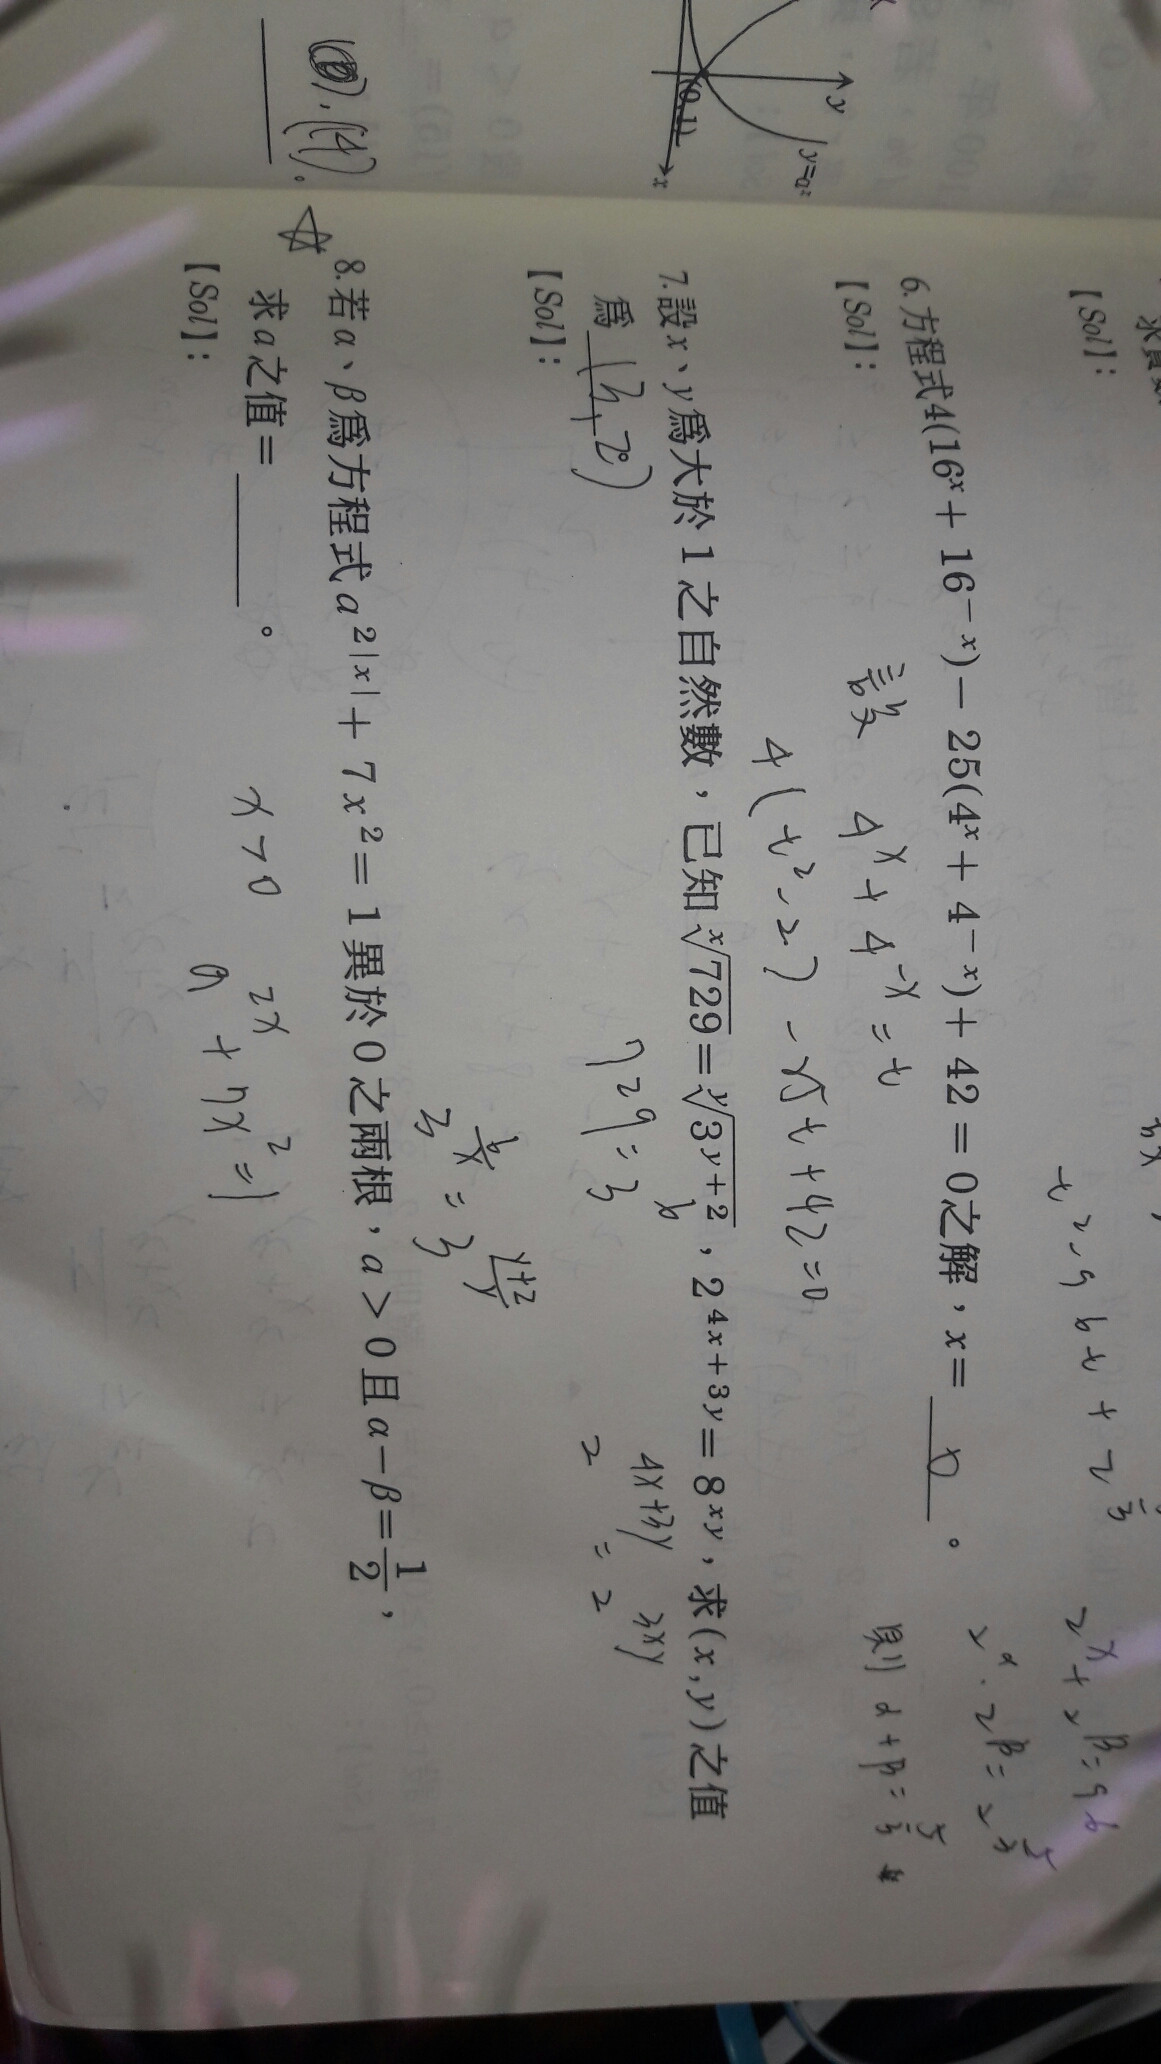 y
y=aˣ
(0,1)
x
(4)。
【Sol】:
t² - 96t + 2
2ˣ + 2ᵝ = 96
2ᵅ · 2ᵝ = 2
則 α + β = 5/3
6.方程式4(16ˣ + 16⁻ˣ) - 25(4ˣ + 4⁻ˣ) + 42 = 0之解，x = 0 。
【Sol】:
設 4ˣ + 4⁻ˣ = t
4(t² - 2) - 25t + 42 = 0
7.設x、y爲大於1之自然數，已知ˣ√729 = ʸ√(3ʸ⁺²)，2⁴ˣ⁺³ʸ = 8ˣʸ，求(x,y)之值
爲 (3,2) 。
【Sol】:
729 = 3⁶
2⁴ˣ⁺³ʸ = 2³ˣʸ
3^(6/x) = 3^((y+2)/y)
☆ 8.若α、β爲方程式a²|ˣ| + 7x² = 1異於0之兩根，a > 0且α - β = 1/2，
求a之值 = ____ 。
【Sol】:
x > 0
a²ˣ + 7x² = 1